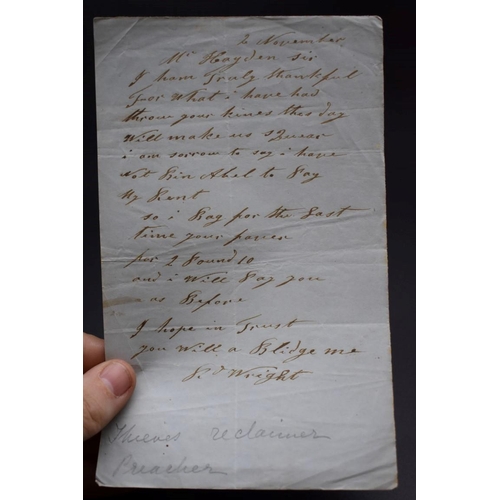 2 November
Mr Hayden sir
I ham Truly thankful
Fuor What i have had
throw your kines this day
Will make us Squear
i am sorrow to say i have
Not Bin Abel to Pay
My Rent
so i Bag for the Last
time your power
for 2 Pound 10
and i Will Pay you
as Before
I hope in Trust
you Will a Blidge me
Wright
Thieves reclaimer
Preacher